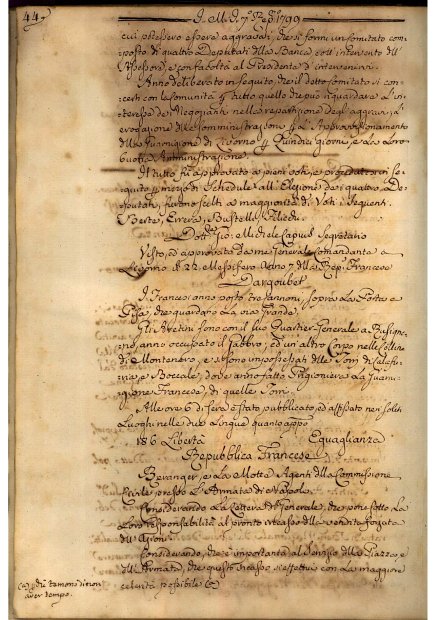 44
cui potessero essere aggravati, che si formi un Comitato com
posto di quattro Deputati della Banca coll' intervento dell'
Assessore, e con facoltà al Presidente d' intervenirvi.
Anno deliberato in seguito, che il detto Comitato si con
certi con la Comunità p tutto quello che può riguardare l' in
teresse de' Negozianti nella repartizione degl' aggravi,
erogazione delle Somministrazioni p l' Approvvisionamento
della Guarnigione di Livorno p Quindici giorni, e la Loro
buona Amministrazione.
Il tutto fù approvato a pieni voti, e procedutosi in se
guito p mezzo di Schedule all' Elezione de' quattro De
putati, furono scelti a maggiorità di Voti i seguenti
Berte, Errera, Bastelli,
Dott. Gio: Michele Segretario
Visto, ed approvato da me Generale Comandante a
Livorno il 22. Messifero Anno 7 della Rep. Francese
Dargoubet
I Francesi anno posto tre Cannoni, sopra la Porta a
Pisa, che guardano la via Grande.
Gli Aretini sono con il suo Quartier Generale a
anno occupato il Gabbro, ed un' altro Corpo nelle Colline
di Montenero, e si sono impossessati delle Torri di
e Boccale, dove anno fatto Prigioniera la Guarni
gione Francese, di quelle Torri.
Alle ore 6 di sera è stato pubblicato, ed affissato nei soliti
Luoghi nelle due Lingue quanto appo
186 Libertà Eguaglianza
Repubblica Francese
Beranger, e La Motte Agenti della Commissione
Civile presso L' Armata di Napoli
Considerando La Lettera del Generale, che pone sotto La
Loro responsabilità al pronto incasso della vendita forzata
dell'
Considerando, che è importante al Servizio della Piazza, e
dell' Armata, che questo incasso si effettui con La maggiore
celerità possibile (a)
(a) che temono di non
aver tempo.